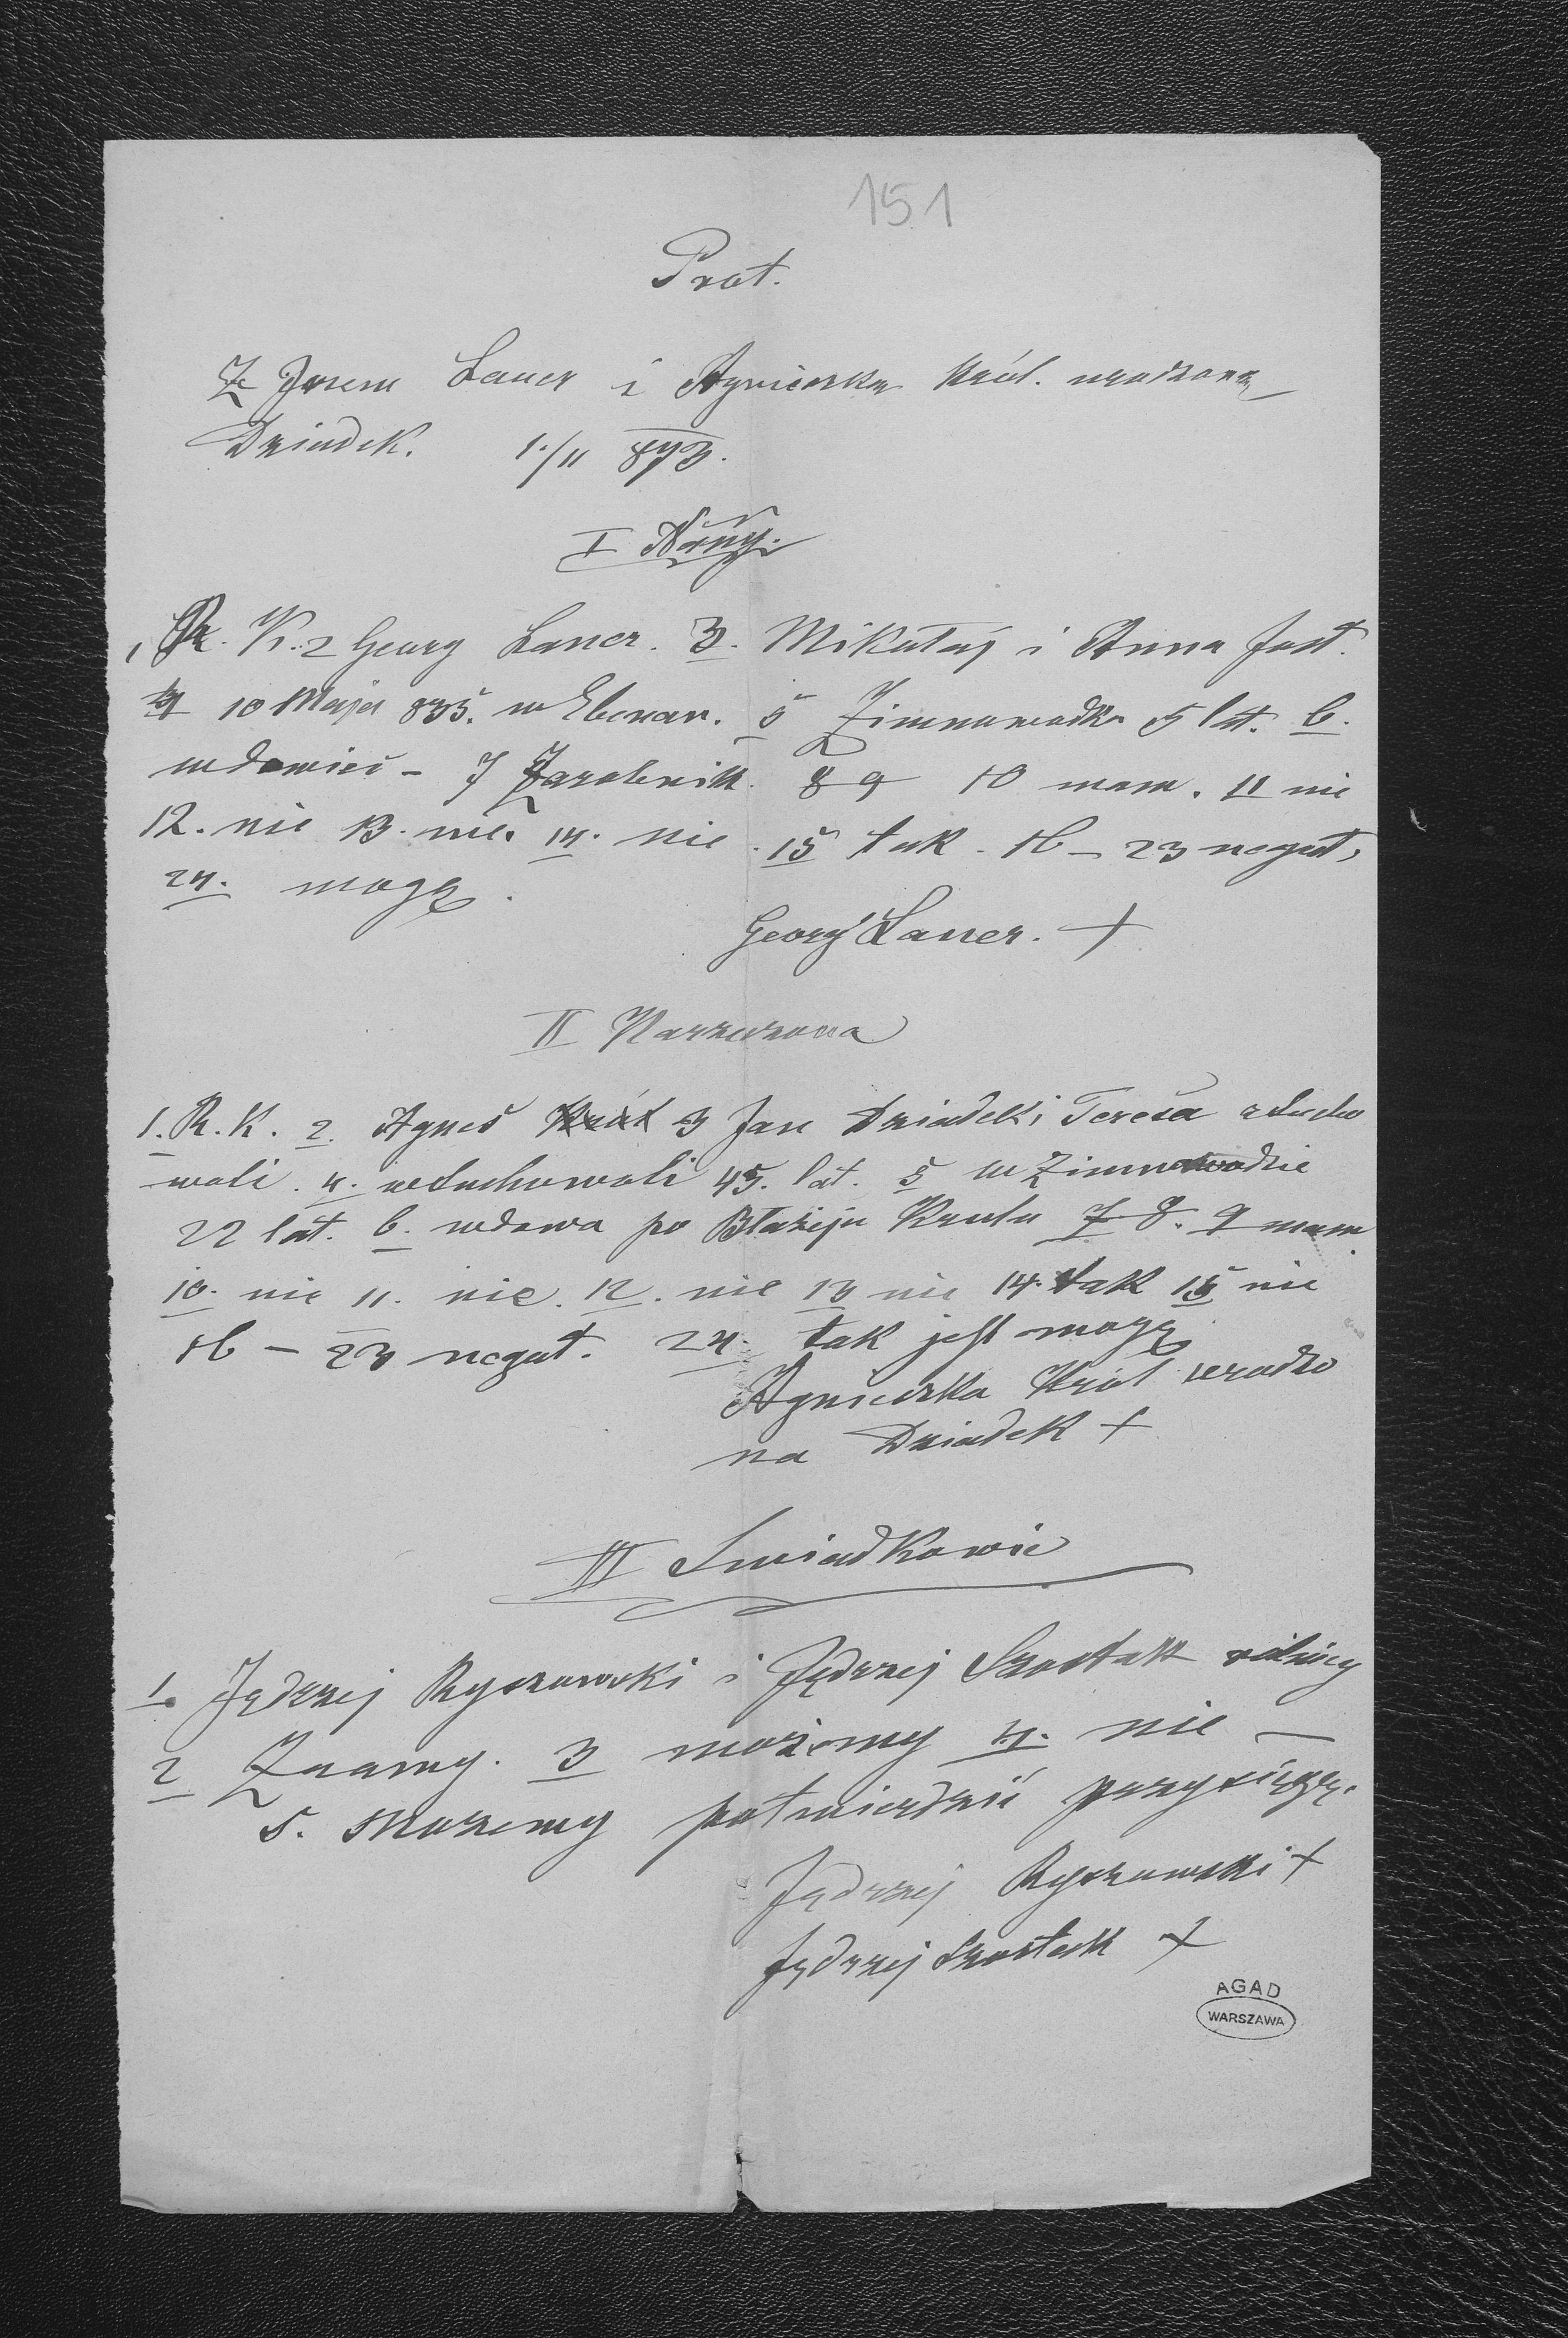 151
Prot.
Z Jurem Lauer i Agnieszka Król. urodzona
Dziadek. 1./11 873.
I Nŏrzy.
1 R. K. 2 Georg Lauer. 3. Mikołaj i Anna Jost.
4 10 Maja 835. w Ebenau. 5 Zimnawodka 5 lat. 6.
wdowiec - 7 Zarobnik. 8 9 10 mam. 11 nie
12. nie 13. nie. 14. nie. 15 tak. 16 - 23 negat.
24. mogę.
Georg Lauer. +
II Narzeczona
1. R. K. 2. Agneś 3 Jan Dziadek i Teresa z Lucho
wali. 4. w Luchowali 45. lat. 5 w Zimnowodzie
22 lat. 6. wdowa po Błażeju Krulu 7 8. 9 mam
10. nie 11. nie. 12. nie 13 nie 14. tak 15 nie
16 - 23 negat. 24. tak jest mogę
Agnieszka Król urodzo
na Dziadek +
III Swiadkowie
1. Jędrzej Ryszawski i Jędrzej Szostak rolnicy
2 Znamy. 3 możemy 4. nie -
5. Możemy potwierdzić przysięgę.
Jędrzej Ryszawski +
Jędrzej Szostak +
AGAD
WARSZAWA